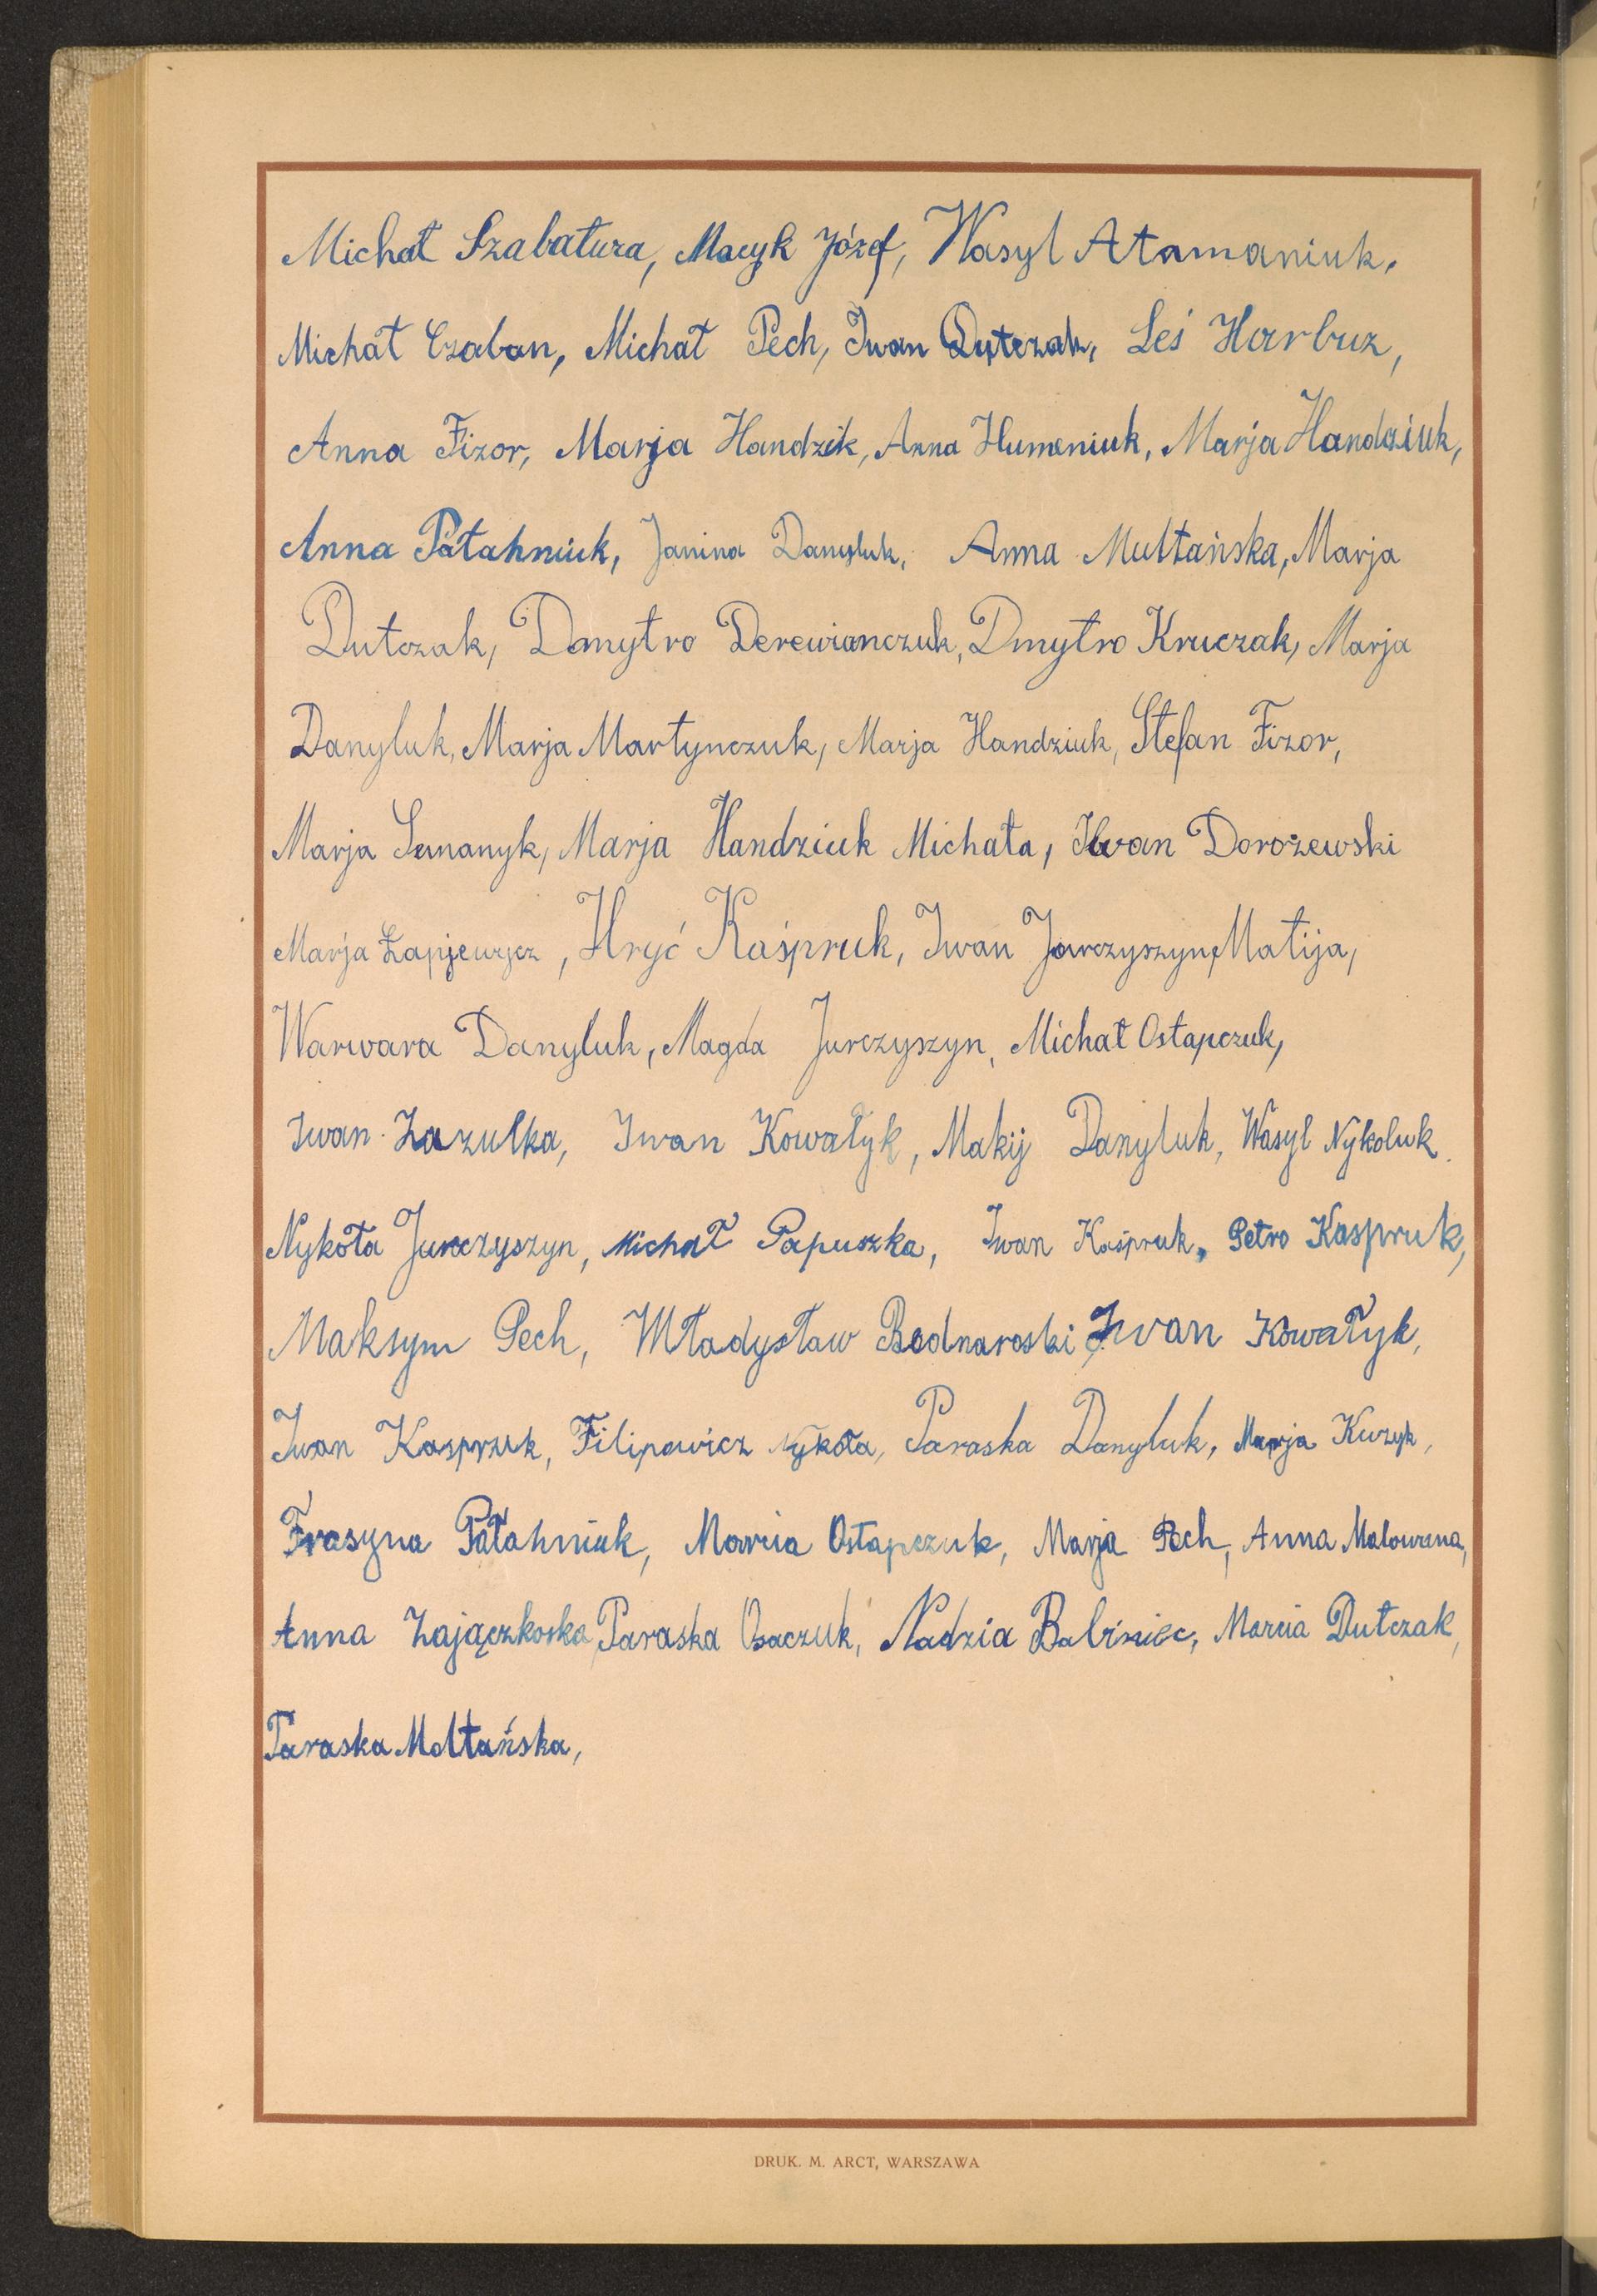 Michał Szabatura, Macyk Józef, Wasyl Atamaniuk,
Michał Czaban, Michał Pech, Iwan Dutczak, Leś Harbuz,
Anna Fizor, Marja Handzik, Anna Humeniuk, Marja Handziuk,
Anna Patahniuk, Janina Danyluk, Anna Multańska, Marja
Dutczak, Dmytro Derewianczuk, Dmytro Kruczak, Marja
Danyluk, Marja Martynczuk, Marja Handziuk, Stefan Fizor,
Marja Semanyk, Marja Handziuk Michała, Iwan Dorożewski
Marja Łapjewycz, Hryć Kaśpruk, Iwan Jurczyszyn, Matija,
Warwara Danyluk, Magda Jurczyszyn, Michał Ostapczuk,
Iwan Zazulka, Iwan Kowałyk, Makij Danyluk, Wasyl Nykoluk.
Nykoła Jurczyszyn, Michał Papuszka, Iwan Kaśpruk, Petro Kaspruk,
Maksym Pech, Władysław Bodnaroski, Iwan Kowałyk,
Iwan Kasprzuk, Filipowicz Nykoła, Paraska Danyluk, Marja Kuzyk,
Frasyna Patahniuk, Marcia Ostapczuk, Marja Pech, Anna Malowana,
Anna Zajączkoska, Paraska Osaczuk, Nadzia Babiniec, Marcia Dutczak,
Paraska Moltańska,
DRUK. M. ARCT, WARSZAWA